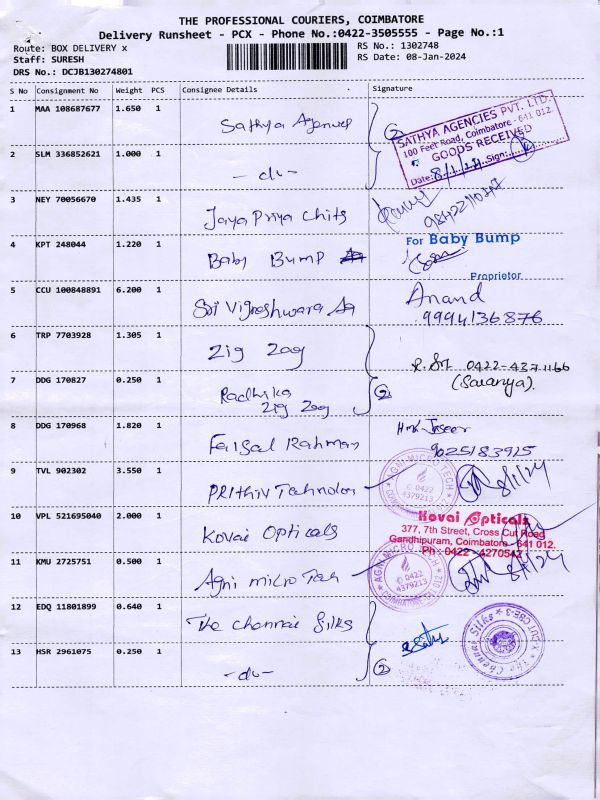 THE PROFESSIONAL COURIERS, COIMBATORE
Delivery Runsheet - PCX - Phone No.:0422-3505555 - Page No.:1
Route: BOX DELIVERY x
RS No.: 1302748
Staff: SURESH
RS Date: 08-Jan-2024
DRS No.: DCJB130274801
S No Consignment No Weight PCS Consignee Details Signature
1 MAA 108687677 1.650 1 Sathya Agencies
SATHYA AGENCIES PVT. LTD.
100 Feet Road, Coimbatore - 641 012.
GOODS RECEIVED
Date: 8/1/24 Sign:
2 SLM 336852621 1.000 1 -do-
3 NEY 70056670 1.435 1 Jaya Priya Chits
4 KPT 248044 1.220 1 Baby Bump
For Baby Bump
Proprietor
5 CCU 100848891 6.200 1 Sri Vigneshwara
Anand
9994136876
6 TRP 7703928 1.305 1 Zig Zag
0422-4371166
7 DDG 170827 0.250 1 Radhika
Zig Zag
(Saranya).
8 DDG 170968 1.820 1 Faisal Rahman
9025183915
9 TVL 902302 3.550 1 PRithiv Technolon
AGNI MICRO TECH
0422
4379213
8/1/24
10 VPL 521695040 2.000 1 Kovai Opticals
Kovai Opticals
377, 7th Street, Cross Cut Road
Gandhipuram, Coimbatore - 641 012.
Ph : 0422 - 4270542
11 KMU 2725751 0.500 1 Agni micro Tech
AGNI MICRO TECH
0422
4379213
COIMBATORE-641 012
8/1/24
12 EDQ 11801899 0.640 1 The Chennai Silks
The Chennai Silks
13 HSR 2961075 0.250 1 -do-
2